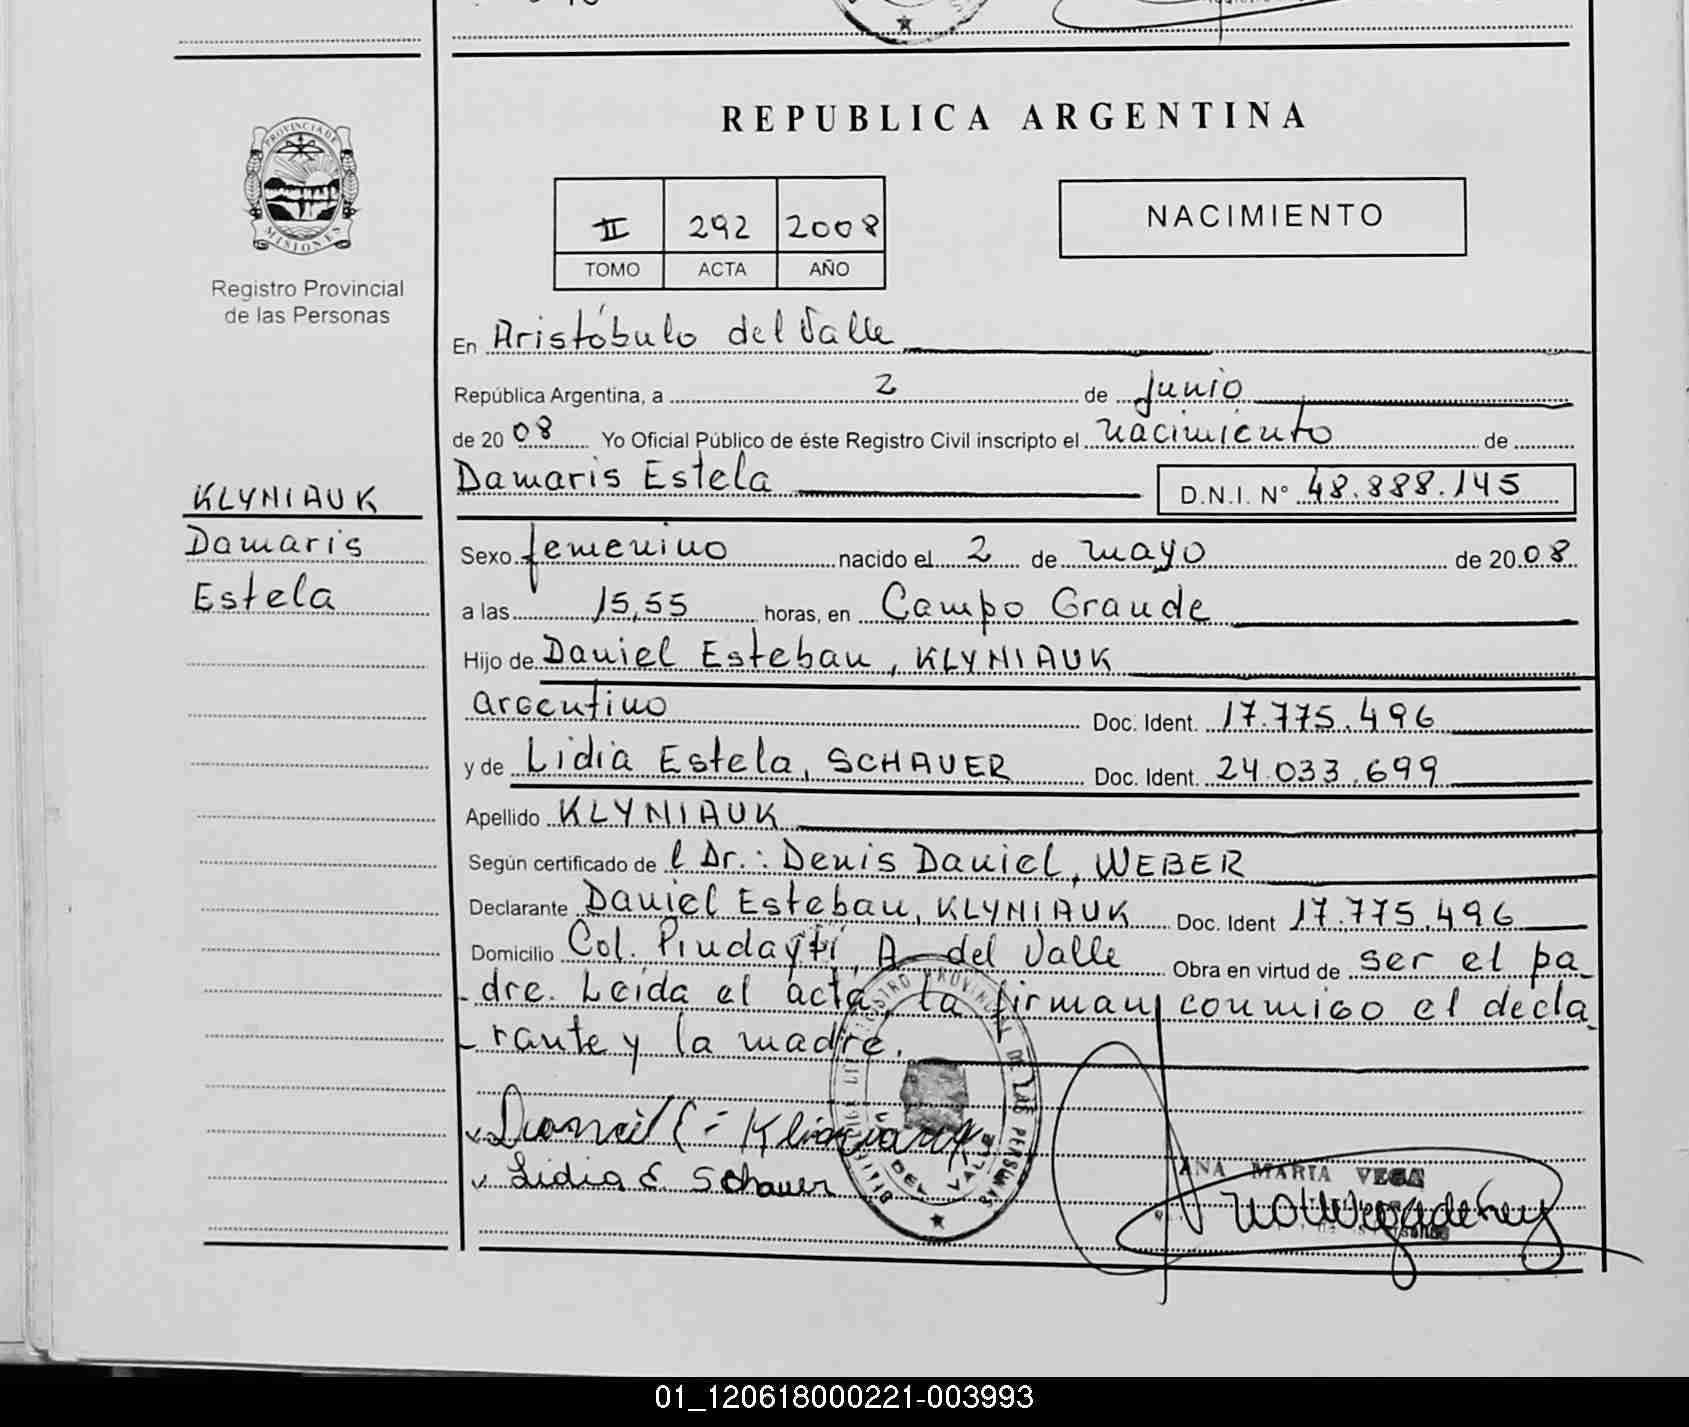 REPUBLICA ARGENTINA
PROVINCIA DE
MISIONES
Registro Provincial
de las Personas
II 292 2008
TOMO ACTA AÑO
NACIMIENTO
En Aristóbulo del Valle
República Argentina, a 2 de junio
de 20 08 Yo Oficial Público de éste Registro Civil inscripto el nacimiento de
Damaris Estela D.N.I. N° 48.888.145
KLYNIAUK
Damaris
Estela
Sexo femenino nacido el 2 de mayo de 20 08
a las 15,55 horas, en Campo Grande
Hijo de Daniel Esteban, KLYNIAUK
argentino Doc. Ident. 17.775.496
y de Lidia Estela, SCHAUER Doc. Ident. 24.033.699
Apellido KLYNIAUK
Según certificado de l Dr.: Denis Daniel, WEBER
Declarante Daniel Esteban, KLYNIAUK Doc. Ident 17.775.496
Domicilio Col. Pindaytí, A. del Valle Obra en virtud de ser el pa
dre. Leída el acta, la firman conmigo el decla
rante y la madre.
REGISTRO PROVINCIAL DE LAS PERSONAS
DEL VALLE
Lidia E Schauer
ANA MARIA VEGA
01_120618000221-003993